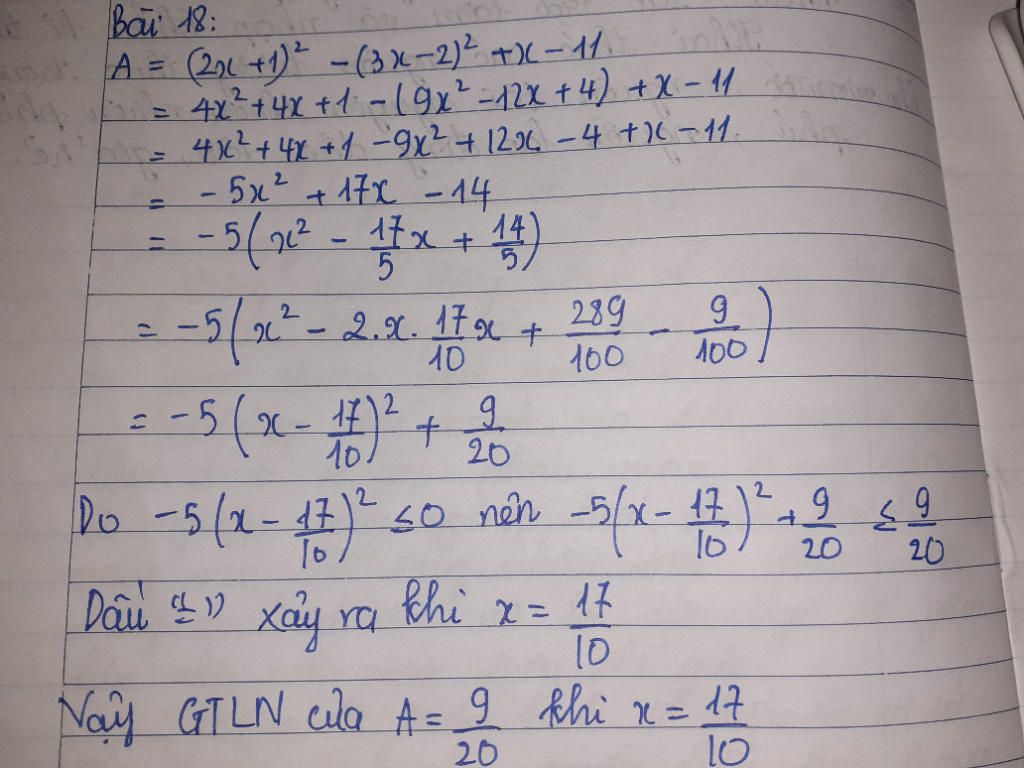 Bài 18:
A = (2x+1)² - (3x-2)² + x - 11
= 4x² + 4x + 1 - (9x² - 12x + 4) + x - 11
= 4x² + 4x + 1 - 9x² + 12x - 4 + x - 11
= -5x² + 17x - 14
= -5(x² - 17/5 x + 14/5)
= -5(x² - 2.x. 17/10 x + 289/100 - 9/100)
= -5(x - 17/10)² + 9/20
Do -5(x - 17/10)² ≤ 0 nên -5(x - 17/10)² + 9/20 ≤ 9/20
Dấu "=" xảy ra khi x = 17/10
Vậy GTLN của A = 9/20 khi x = 17/10